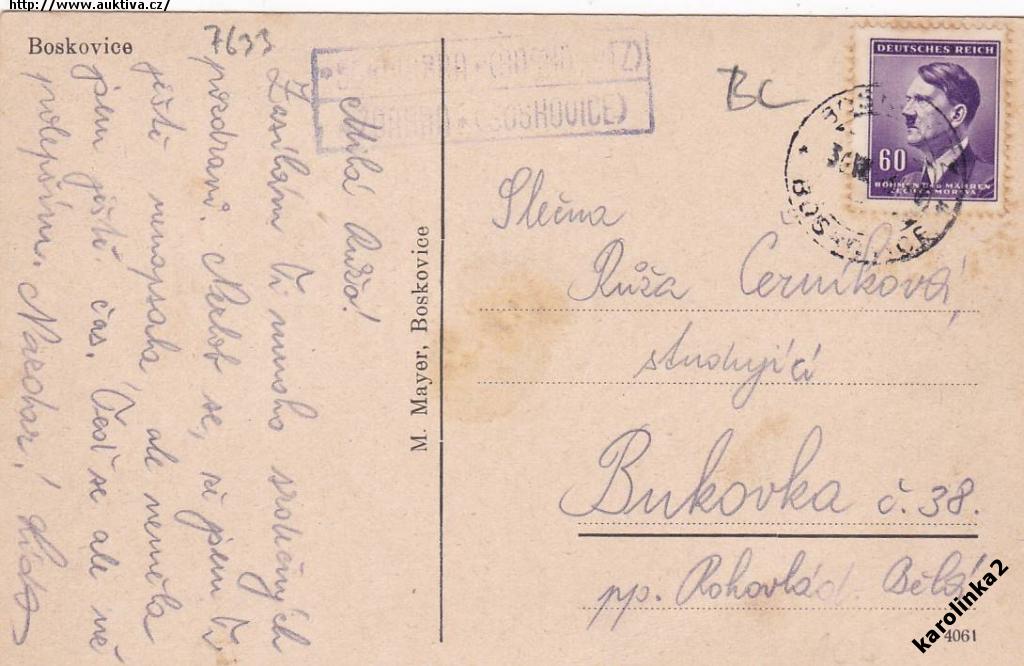 http://www.auktiva.cz/
Boskovice
7633
BC
DEUTSCHES REICH
60
BÖHMEN UND MÄHREN
BOSKOVICE
(BOSKOVICE)
Milá Růžo!
Zasílám Ti mnoho srdečných
pozdravů. Nezlob se, že jsem Ti
ještě nenapsala ale neměla
jsem ještě čas.
polepším. Nazdar!
M. Mayer, Boskovice
Slečna
Růža Černíková,
studující
Bukovka č. 38.
pp. Rohovlád. Bělá
4061
karolinka2